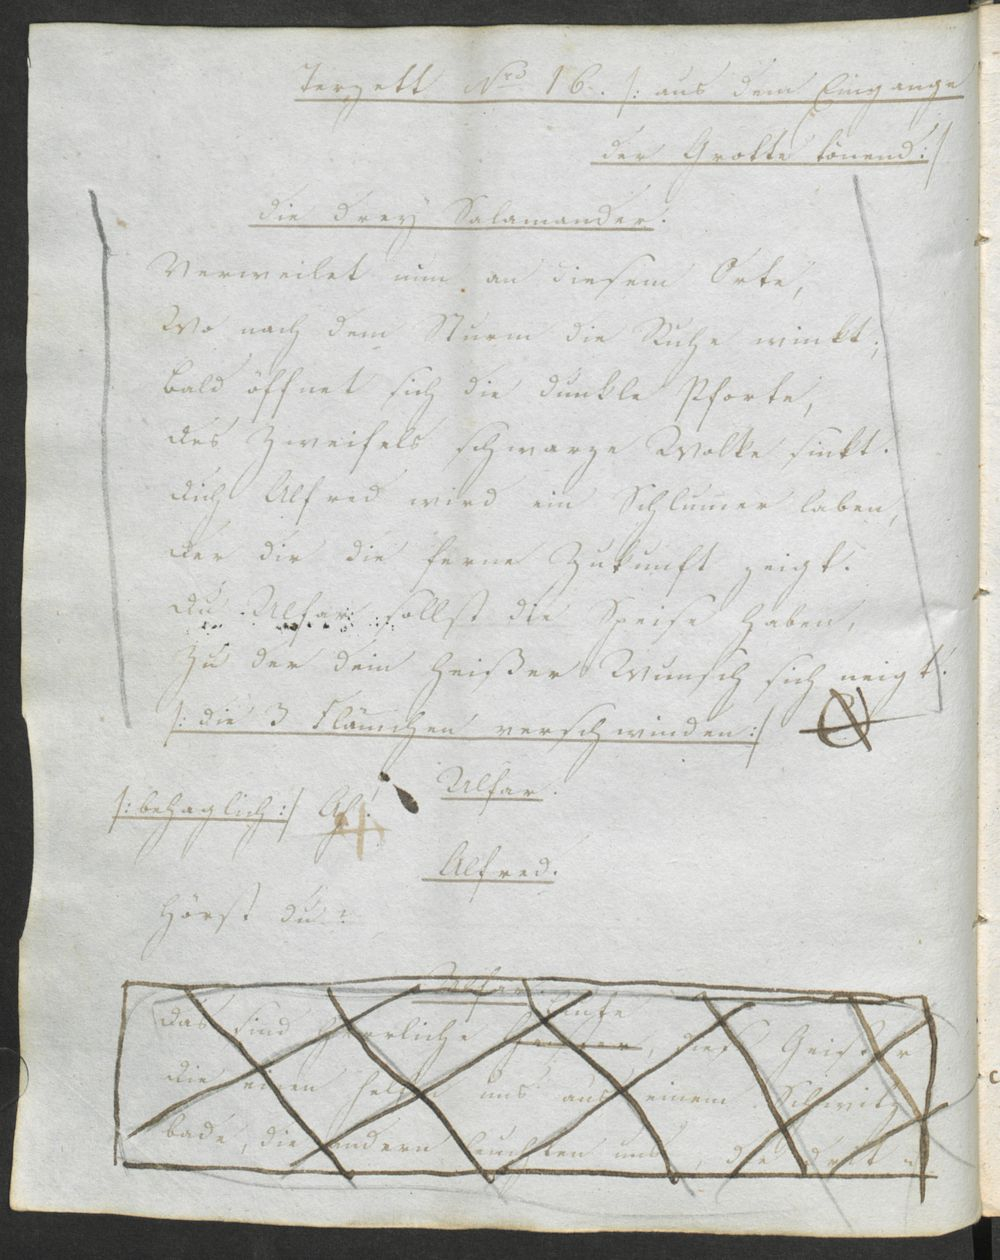 Terzett Nro 16. /: aus dem Eingange
der Grotte tönend :/
die drey Salamander.
Verweilet nun an diesem Orte,
Wo nach dem Sturm die Ruhe winkt;
bald öffnet sich die dunkle Pforte,
des Zweifels schwarze Wolke sinkt.
dich Alfred wird ein Schlummer laben,
der dir die ferne Zukunft zeigt.
du Ulfar sollst die Speise haben,
Zu der dein heißer Wunsch sich neigt.
/: die 3 Flämchen verschwinden :/
Ulfar.
/: behaglich :/ Ah!
Alfred.
Hörst du?
Ulfar.
Leute
das sind herrliche , dieß Geister
die einen helfen uns aus einem Schwitz
bade, die andern leuchten uns, die drit=